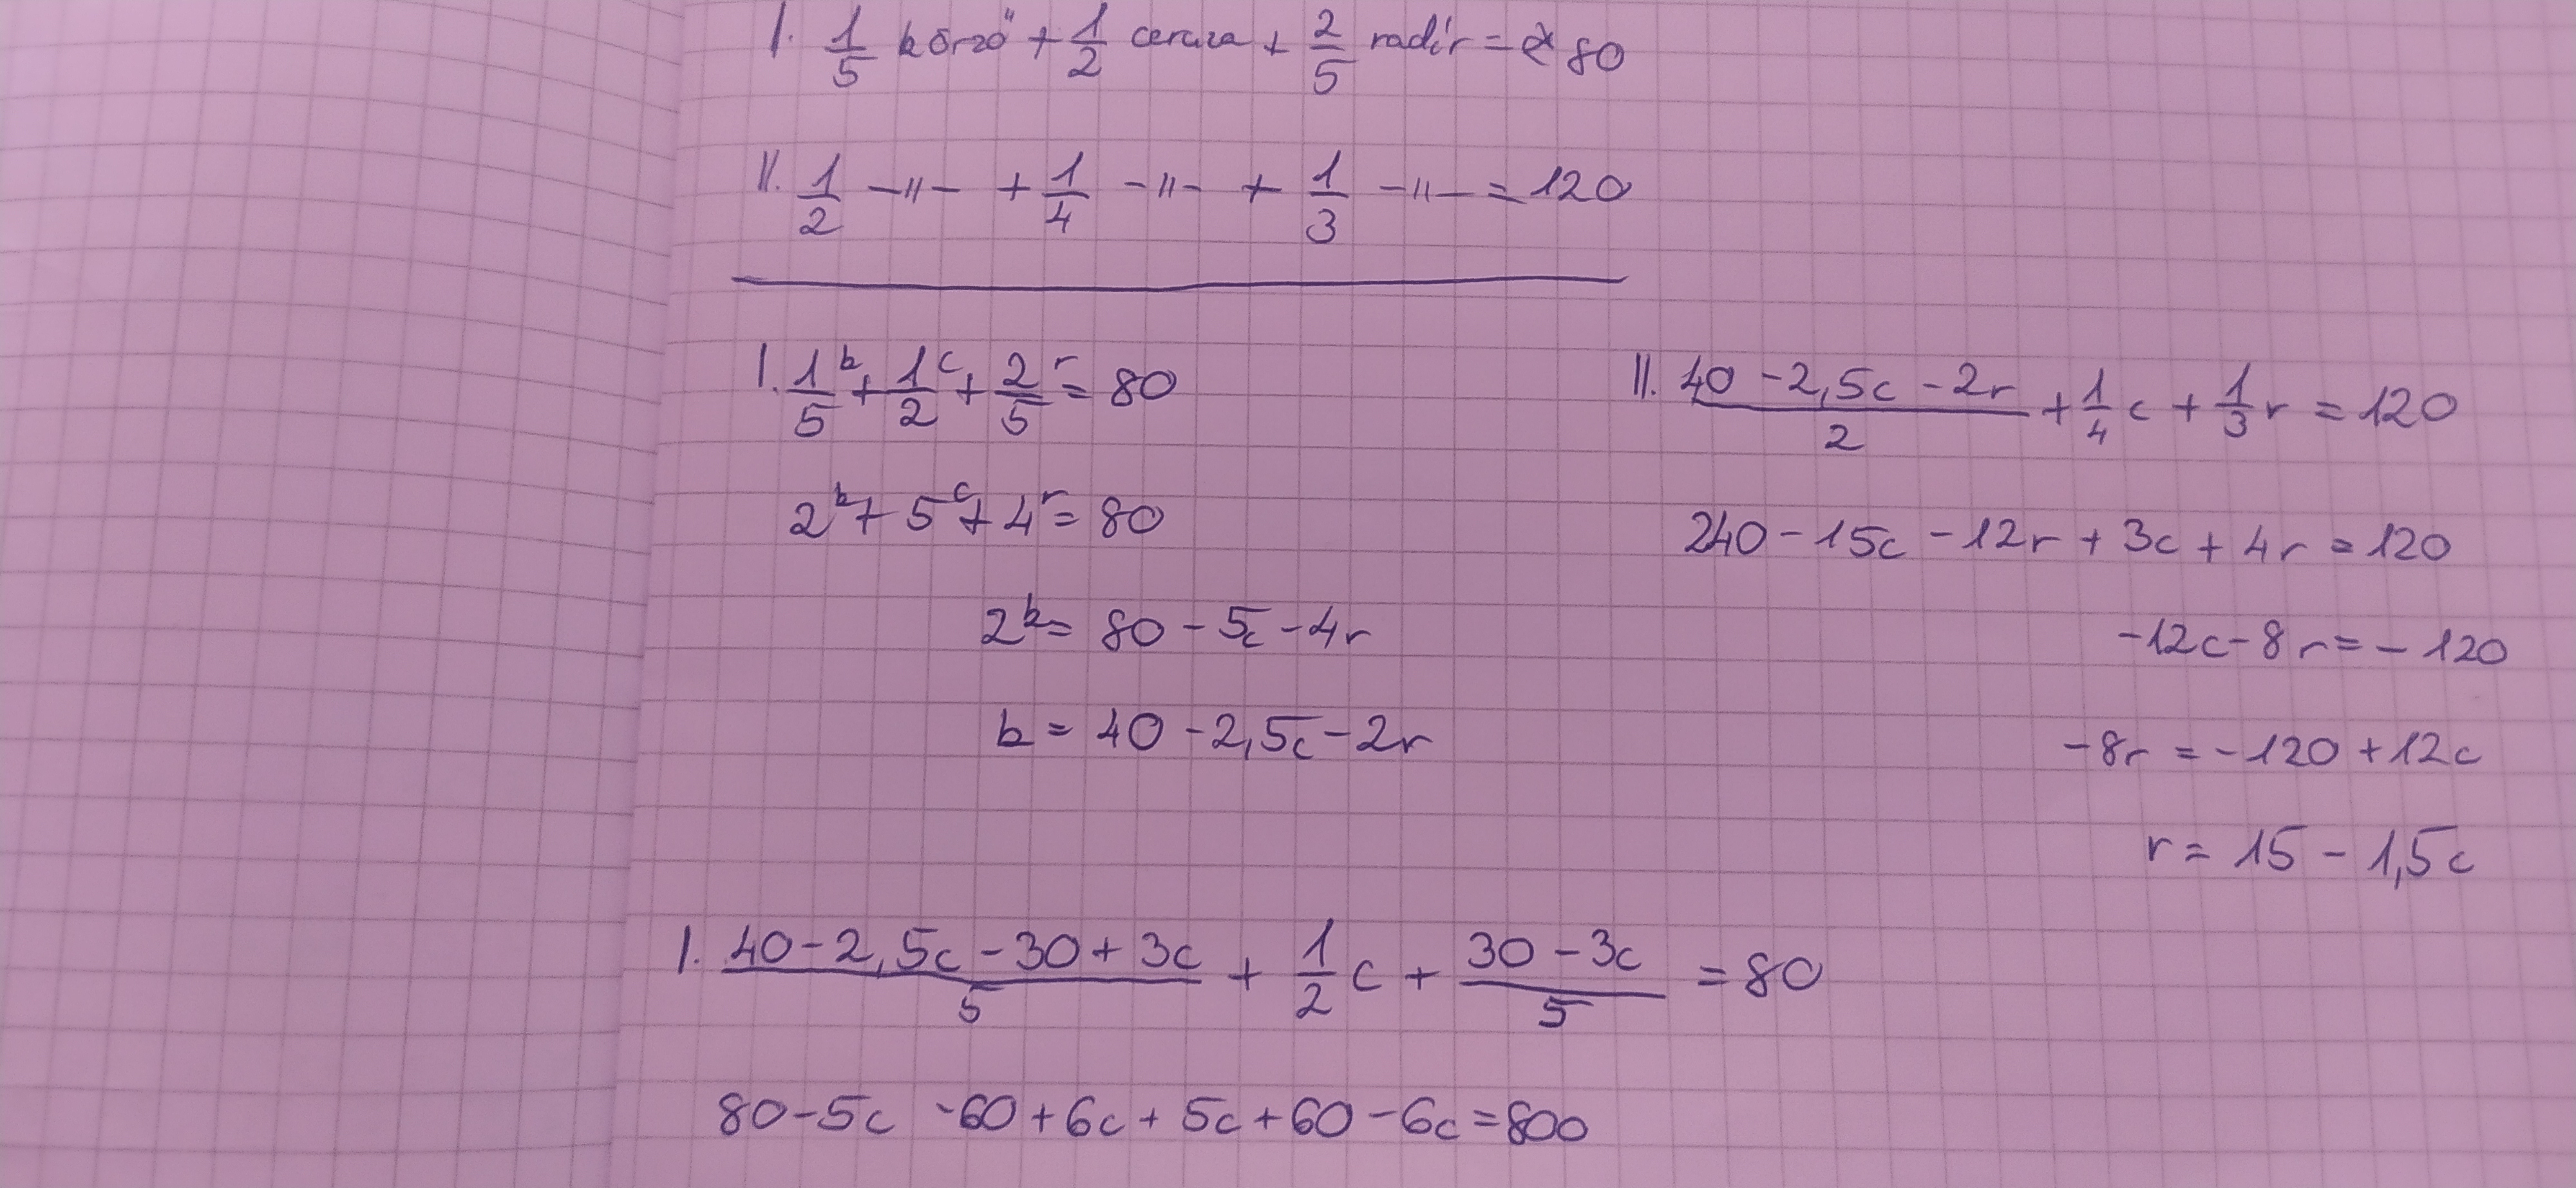 I. 1/5 körző + 1/2 ceruza + 2/5 radír = 80
II. 1/2 -〃- + 1/4 -〃- + 1/3 -〃- = 120
I. 1/5 k + 1/2 c + 2/5 r = 80
2k + 5c + 4r = 80
2k = 80 - 5c - 4r
k = 40 - 2,5c - 2r
II. (40 - 2,5c - 2r)/2 + 1/4 c + 1/3 r = 120
240 - 15c - 12r + 3c + 4r = 120
-12c - 8r = -120
-8r = -120 + 12c
r = 15 - 1,5c
I. (40 - 2,5c - 30 + 3c)/5 + 1/2 c + (30 - 3c)/5 = 80
80 - 5c - 60 + 6c + 5c + 60 - 6c = 800